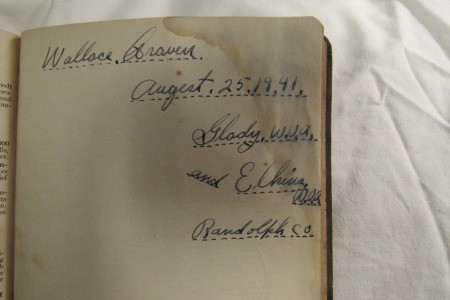 Wallace. Craven.
Augest. 25. 19. 41.
Glady. W.V.A.
and Elkins,
W.V.A
Randolph co.